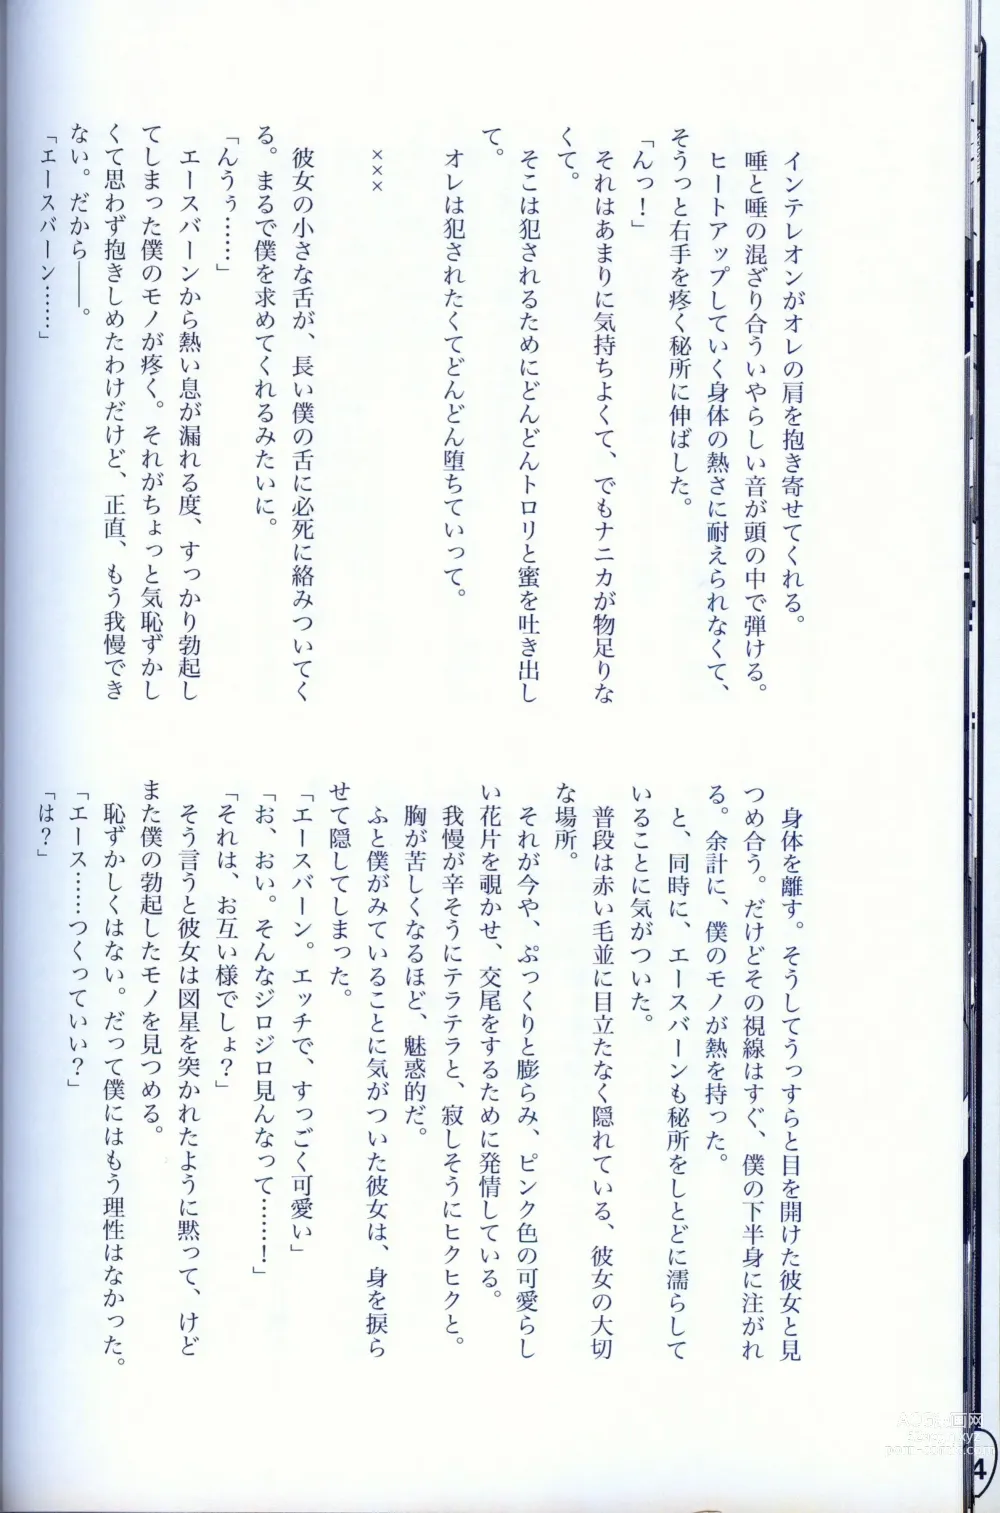 インテレオンがオレの肩を抱き寄せてくれる。
唾と唾の混ざり合ういやらしい音が頭の中で弾ける。
ヒートアップしていく身体の熱さに耐えられなくて、
そうっと右手を疼く秘所に伸ばした。
「んっ！」
それはあまりに気持ちよくて、でもナニカが物足りな
くて。
そこは犯されるためにどんどんトロリと蜜を吐き出し
て。
オレは犯されたくてどんどん堕ちていって。
×××
彼女の小さな舌が、長い僕の舌に必死に絡みついてく
る。まるで僕を求めてくれるみたいに。
「んうぅ……」
エースバーンから熱い息が漏れる度、すっかり勃起し
てしまった僕のモノが疼く。それがちょっと気恥ずかし
くて思わず抱きしめたわけだけど、正直、もう我慢でき
ない。だから――。
「エースバーン……」
身体を離す。そうしてうっすらと目を開けた彼女と見
つめ合う。だけどその視線はすぐ、僕の下半身に注がれ
る。余計に、僕のモノが熱を持った。
と、同時に、エースバーンも秘所をしとどに濡らして
いることに気がついた。
普段は赤い毛並に目立たなく隠れている、彼女の大切
な場所。
それが今や、ぷっくりと膨らみ、ピンク色の可愛らし
い花片を覗かせ、交尾をするために発情している。
我慢が辛そうにテラテラと、寂しそうにヒクヒクと。
胸が苦しくなるほど、魅惑的だ。
ふと僕がみていることに気がついた彼女は、身を捩ら
せて隠してしまった。
「エースバーン。エッチで、すっごく可愛い」
「お、おい。そんなジロジロ見んなって……！」
「それは、お互い様でしょ？」
そう言うと彼女は図星を突かれたように黙って、けど
また僕の勃起したモノを見つめる。
恥ずかしくはない。だって僕にはもう理性はなかった。
「エース……つくっていい？」
「は？」
4